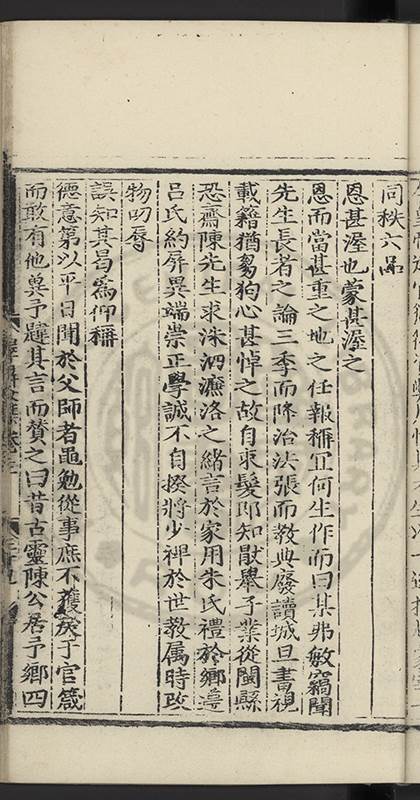 同秩六品
恩甚渥也蒙甚渥之
恩而當甚重之地之任報稱冝何生作而曰某弗敏竊聞
先生長者之論三季而降治法張而教典廢讀城旦書視
載籍猶芻狗心甚悼之故自束髮即知猒舉子業從閩縣
恐齋陳先生求洙泗濂洛之緒言於家用朱氏禮於鄉遵
吕氏約屏異端崇正學誠不自揆將少裨於世教属時攻
物叨辱
誤知其曷為仰稱
德意第以平日聞於父師者黽勉從事庶不獲戾于官箴
而敢有他㒷予韙其言而賛之曰昔古靈陳公居予鄉四